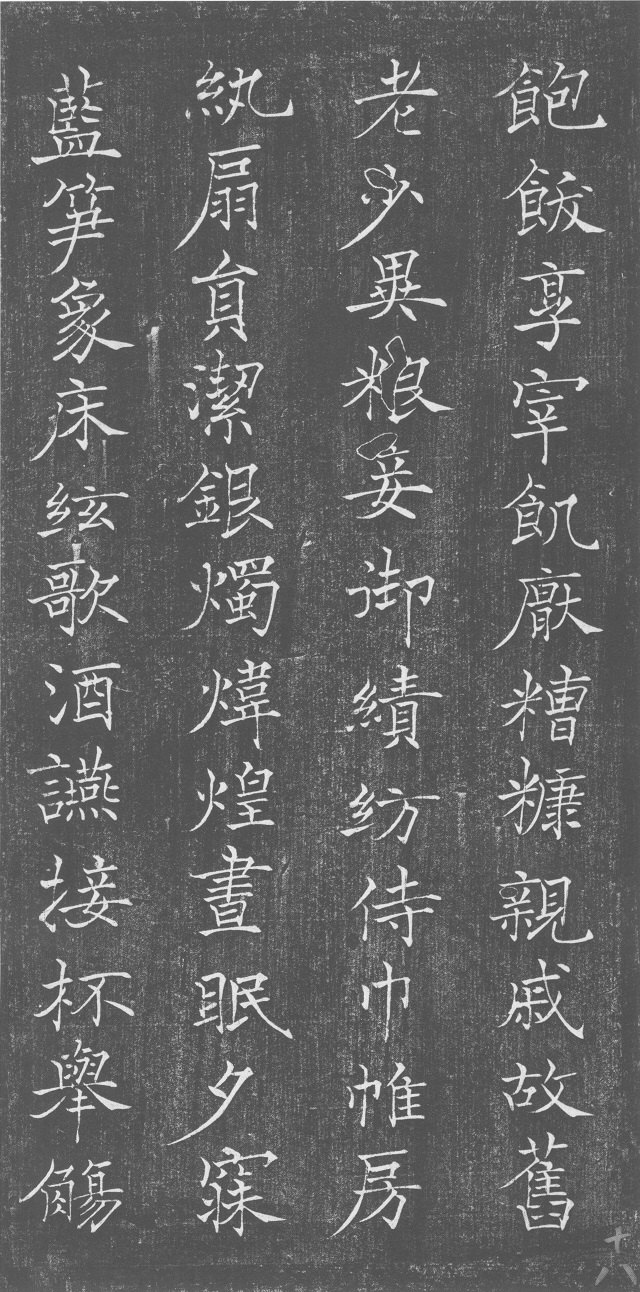 飽飫享宰飢厭糟糠親戚故舊
老少異粮妾御績紡侍巾帷房
紈扇員潔銀燭煒煌晝眠夕寐
藍笋象床絃歌酒讌接杯舉觴
十八